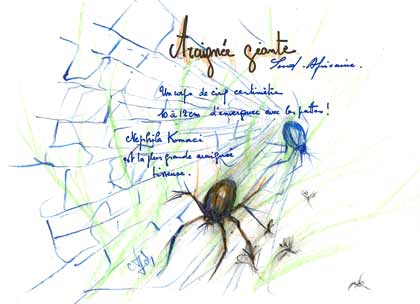 Araignée géante
Sud-Africaine.
Un corps de cinq centimètres
10 à 12 cm d'envergure avec les pattes !
Nephila Komaci
est la plus grande araignée
tisseuse.